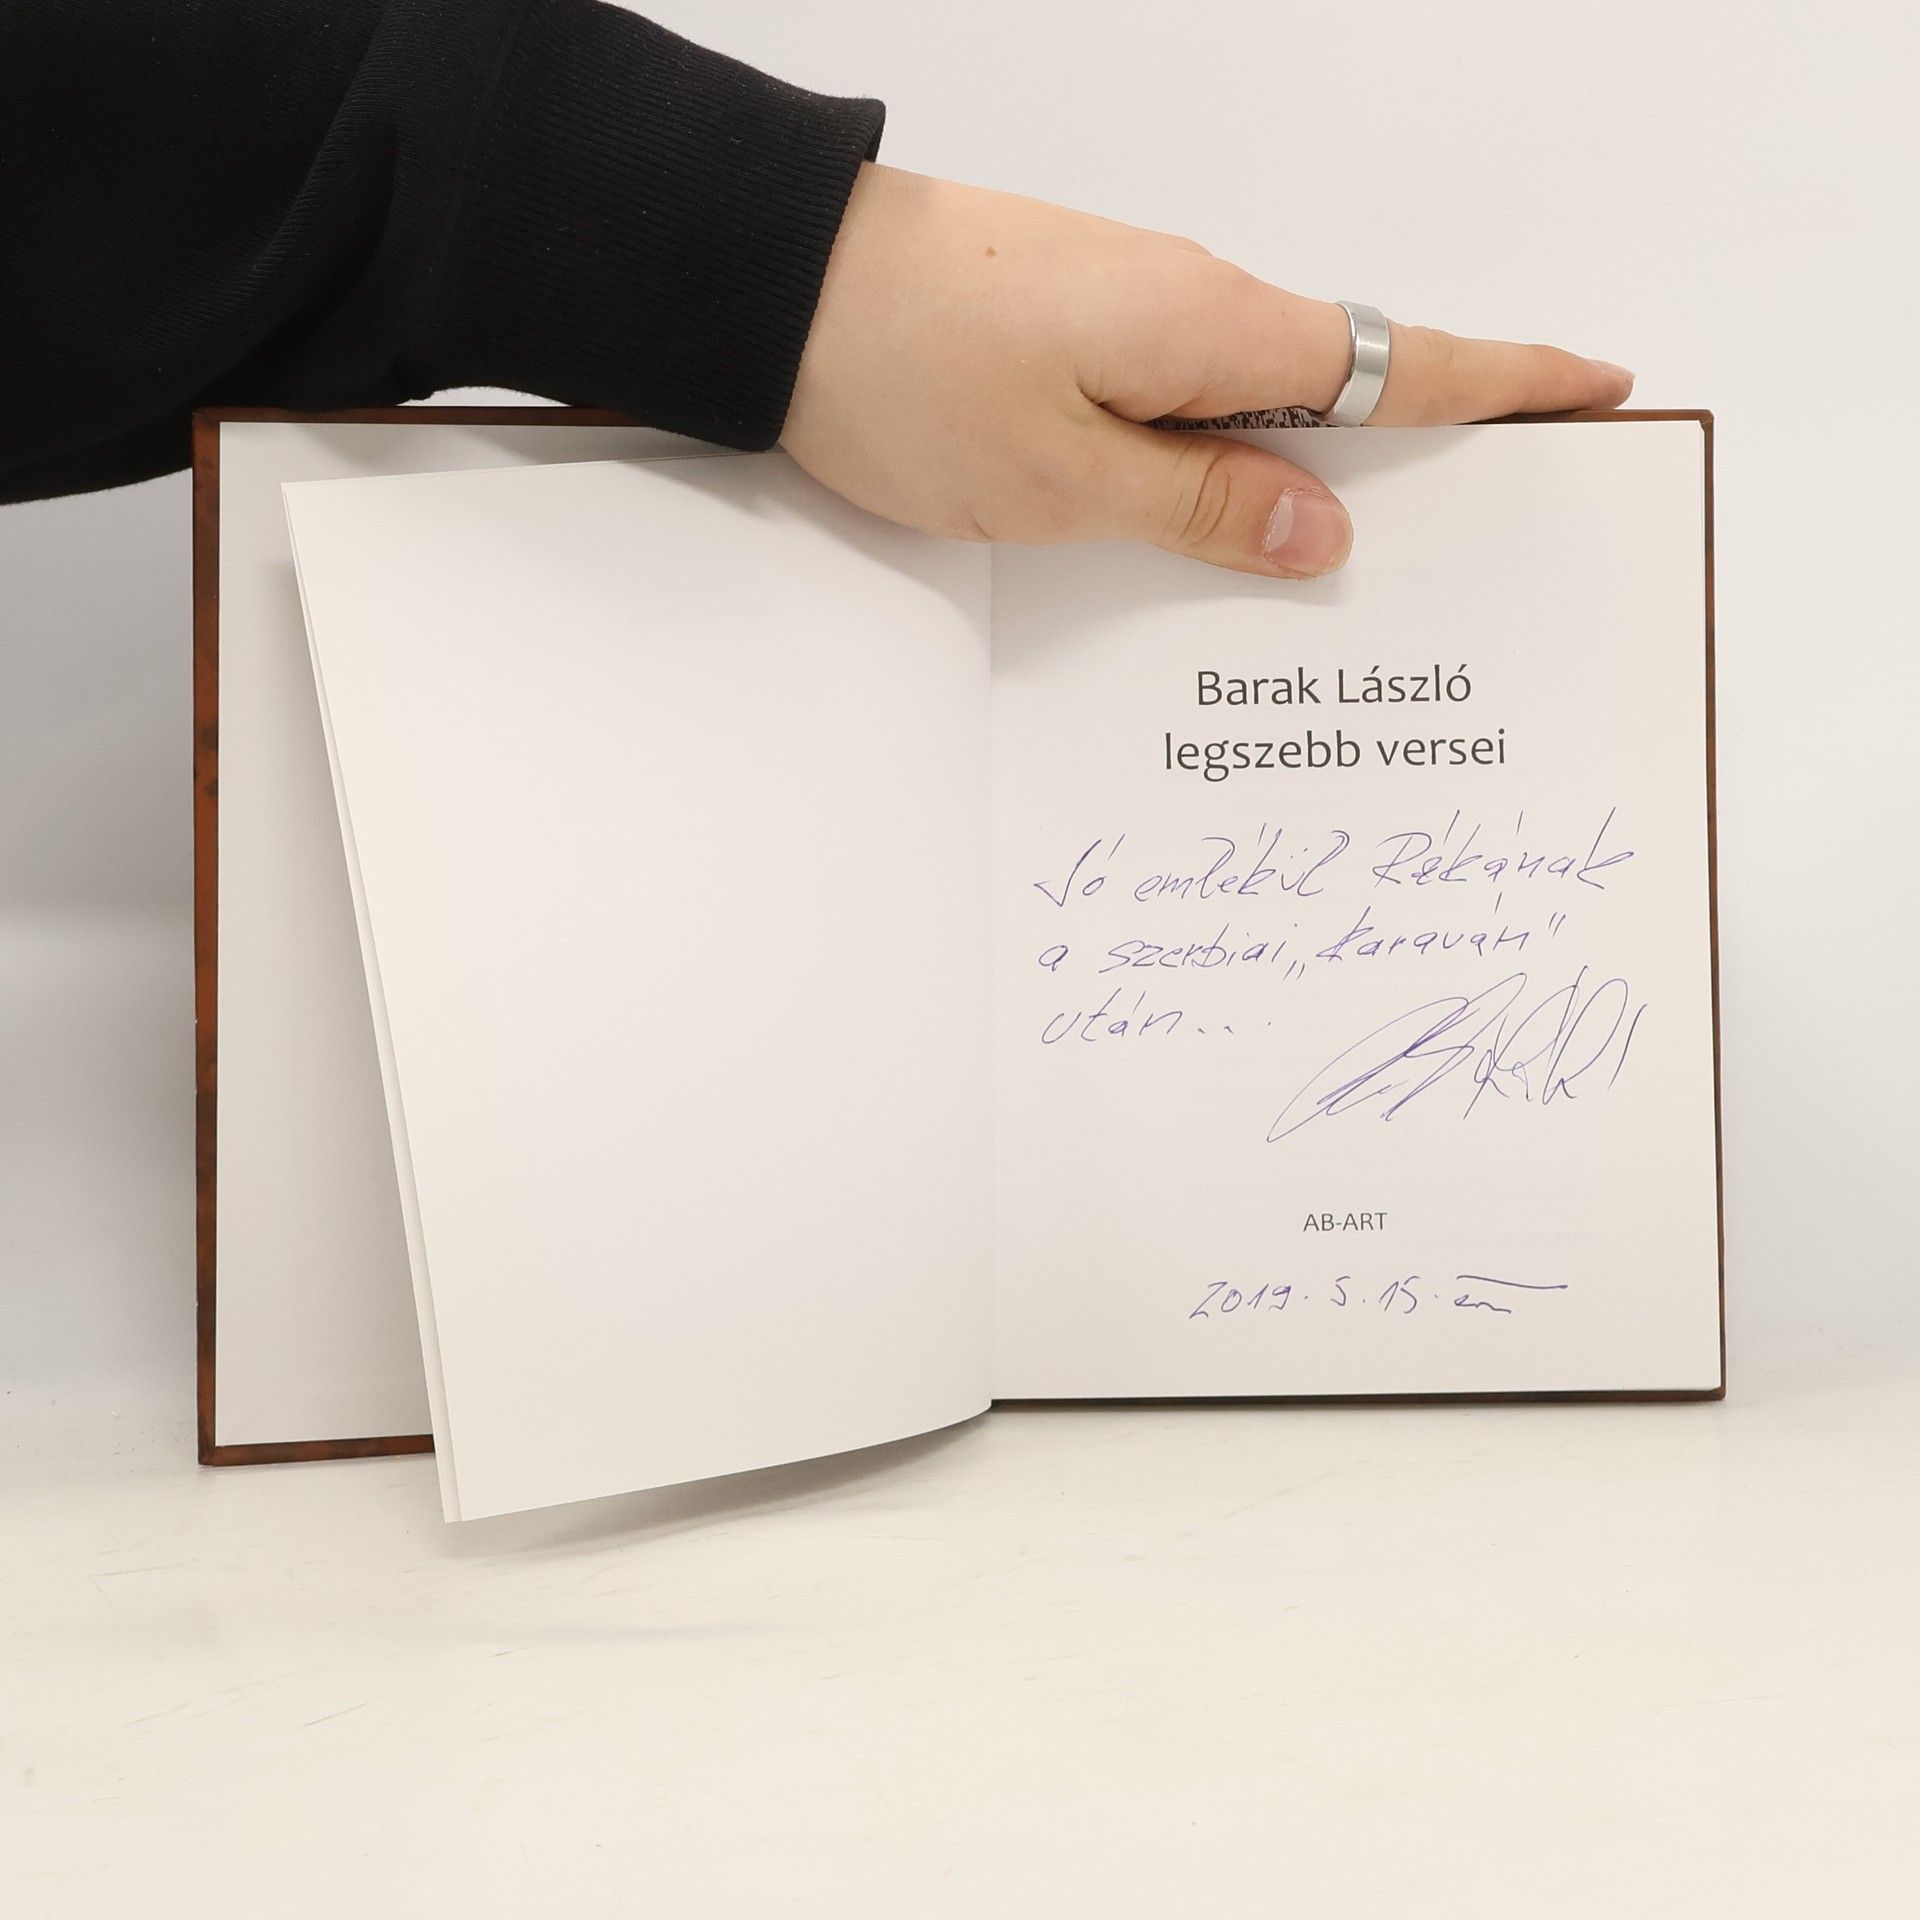 Barak László
legszebb versei
Jó emlékül Rékának
a szerbiai „karaván”
után...
AB-ART
2019. 5. 15.